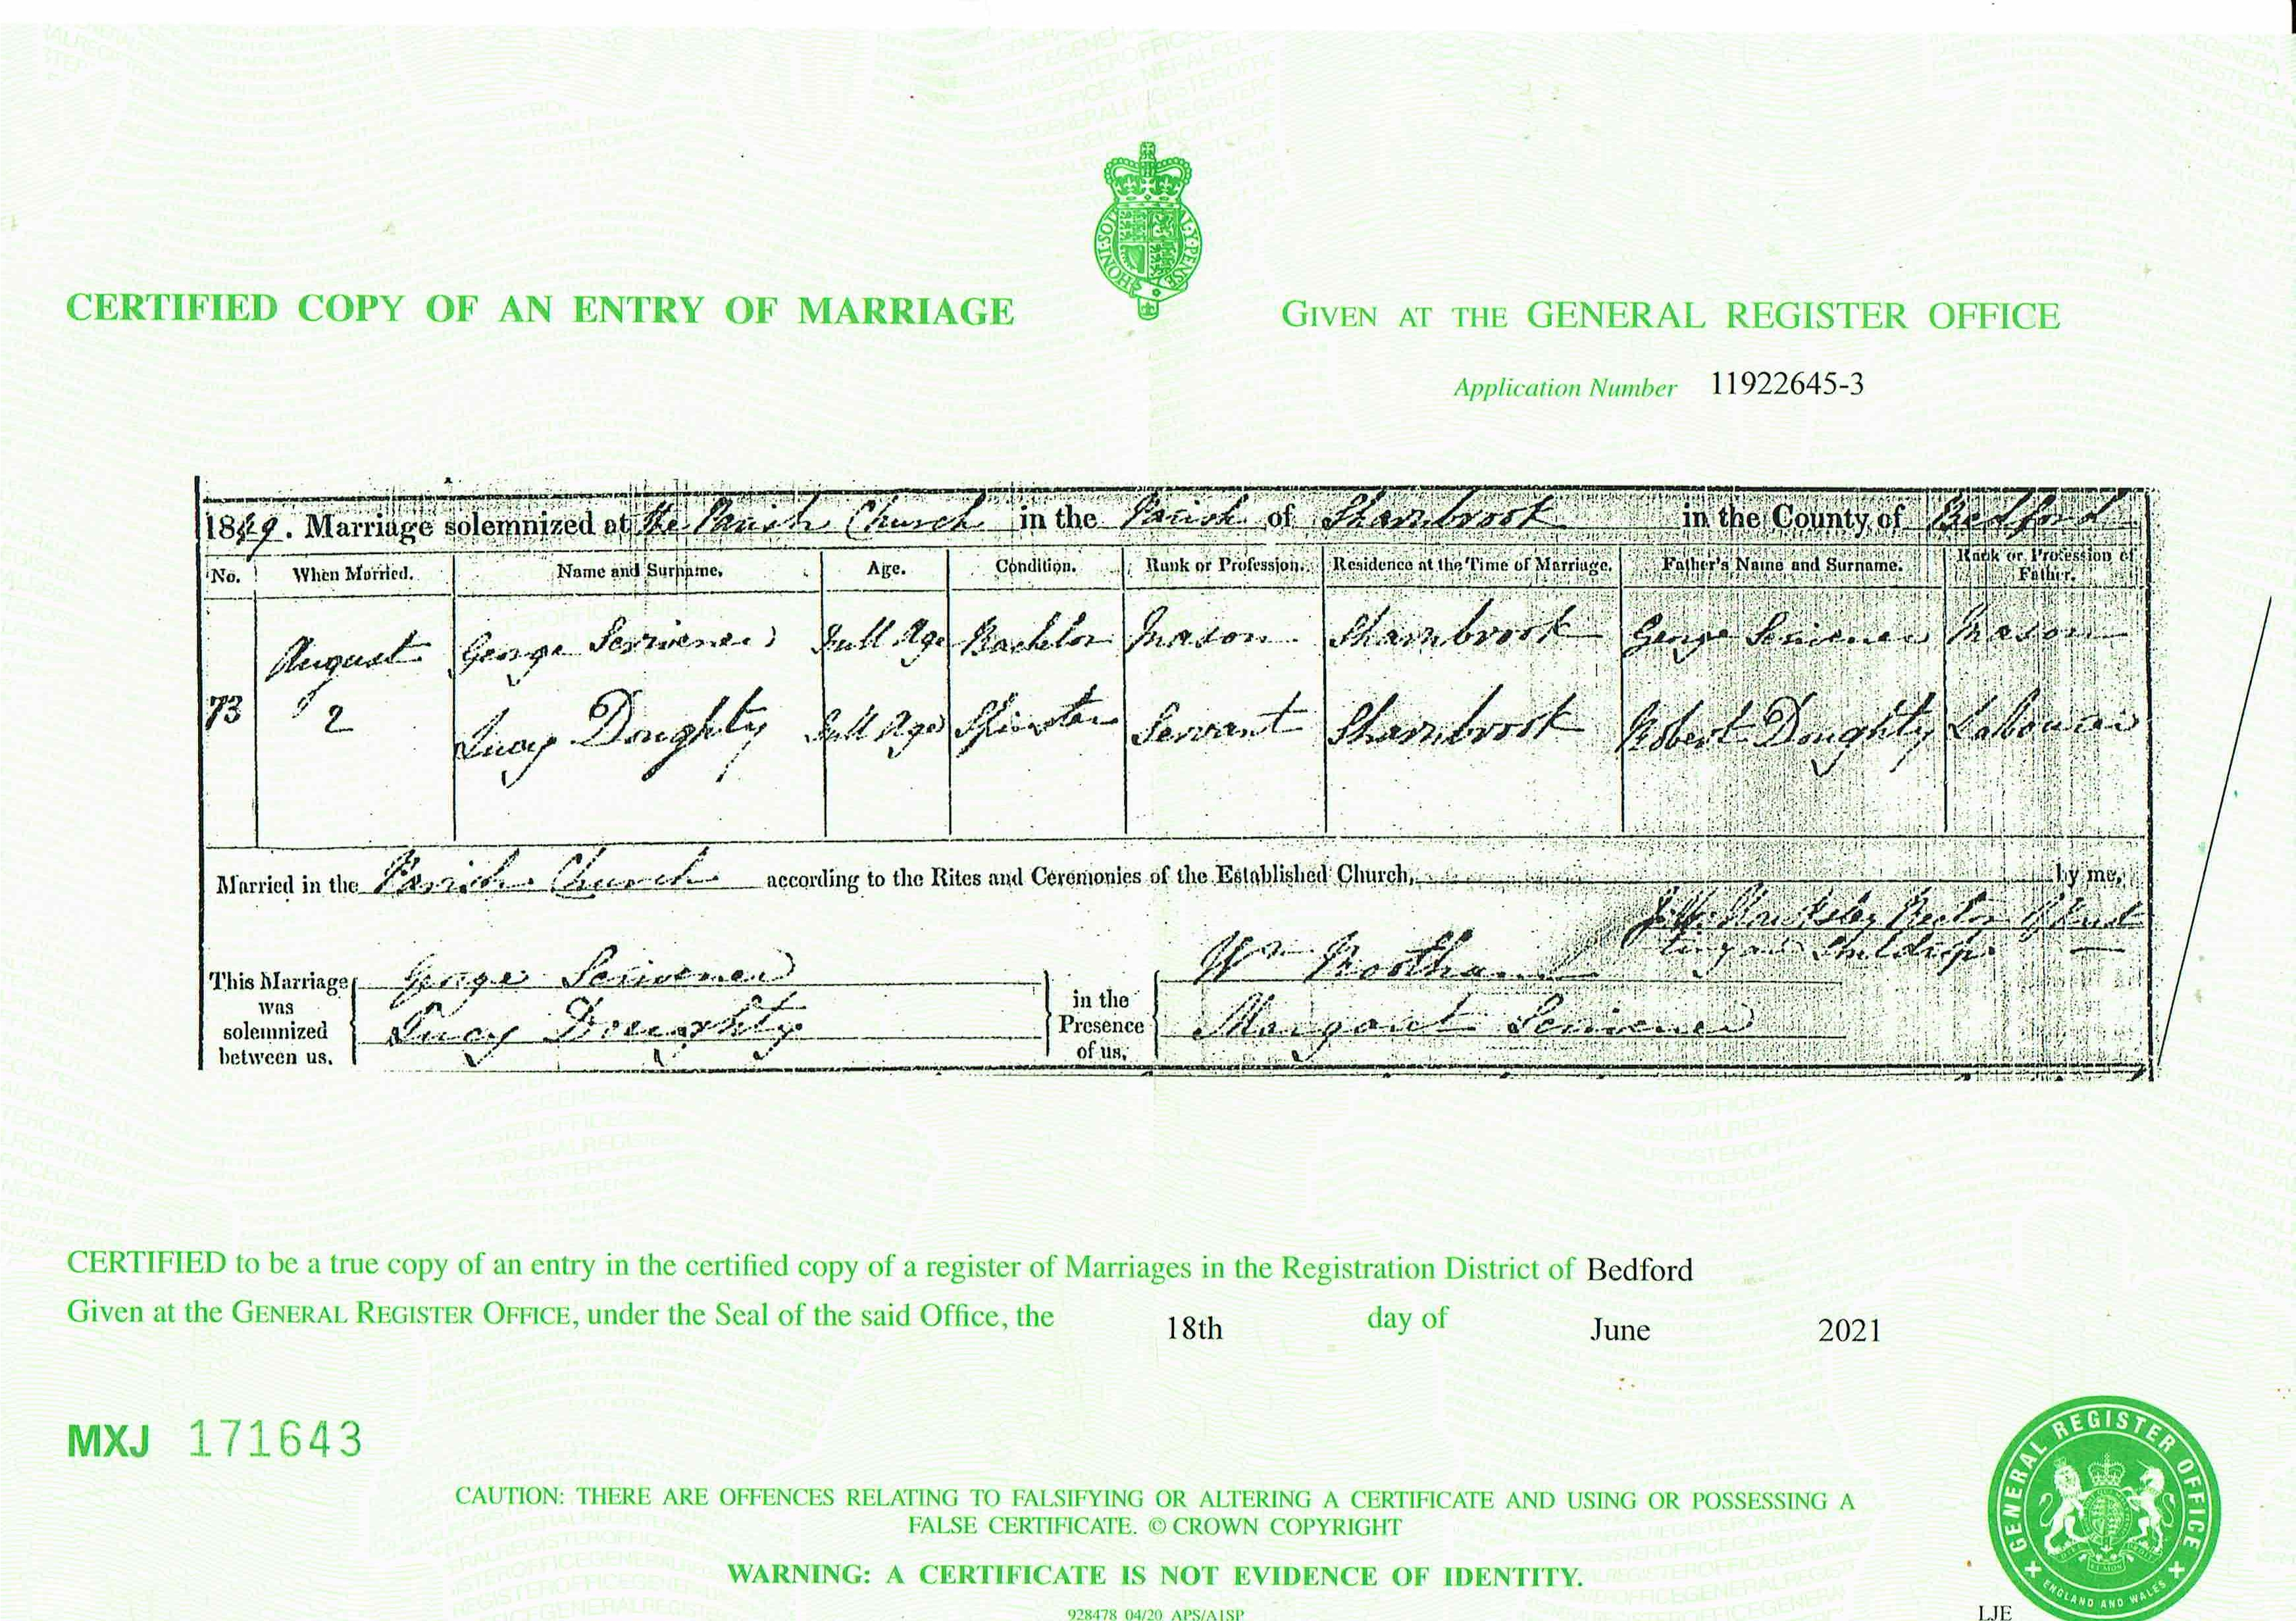 CERTIFIED COPY OF AN ENTRY OF MARRIAGE
HONI·SOIT Y·PENSE
GIVEN AT THE GENERAL REGISTER OFFICE
Application Number 11922645-3
1849. Marriage solemnized at the Parish Church in the Parish of Sharnbrook in the County of Bedford
No. When Married. Name and Surname. Age. Condition. Rank or Profession. Residence at the Time of Marriage. Father's Name and Surname. Rank or Profession of Father.
August George Scrivener Full Age Bachelor Mason Sharnbrook George Scrivener Mason
73 2 Lucy Doughty Full Age Spinster Servant Sharnbrook Robert Doughty Labourer
Married in the Parish Church according to the Rites and Ceremonies of the Established Church, by me,
J. W. Hawksley Rector of
and Souldrop
This Marriage was solemnized between us, George Scrivener
Lucy Doughty
in the Presence of us, Wm
Margaret Scrivener
CERTIFIED to be a true copy of an entry in the certified copy of a register of Marriages in the Registration District of Bedford
Given at the GENERAL REGISTER OFFICE, under the Seal of the said Office, the 18th day of June 2021
MXJ 171643
CAUTION: THERE ARE OFFENCES RELATING TO FALSIFYING OR ALTERING A CERTIFICATE AND USING OR POSSESSING A
FALSE CERTIFICATE. © CROWN COPYRIGHT
WARNING: A CERTIFICATE IS NOT EVIDENCE OF IDENTITY.
928478 04/20 APS/A1SP
LJE
GENERAL REGISTER OFFICE
ENGLAND AND WALES